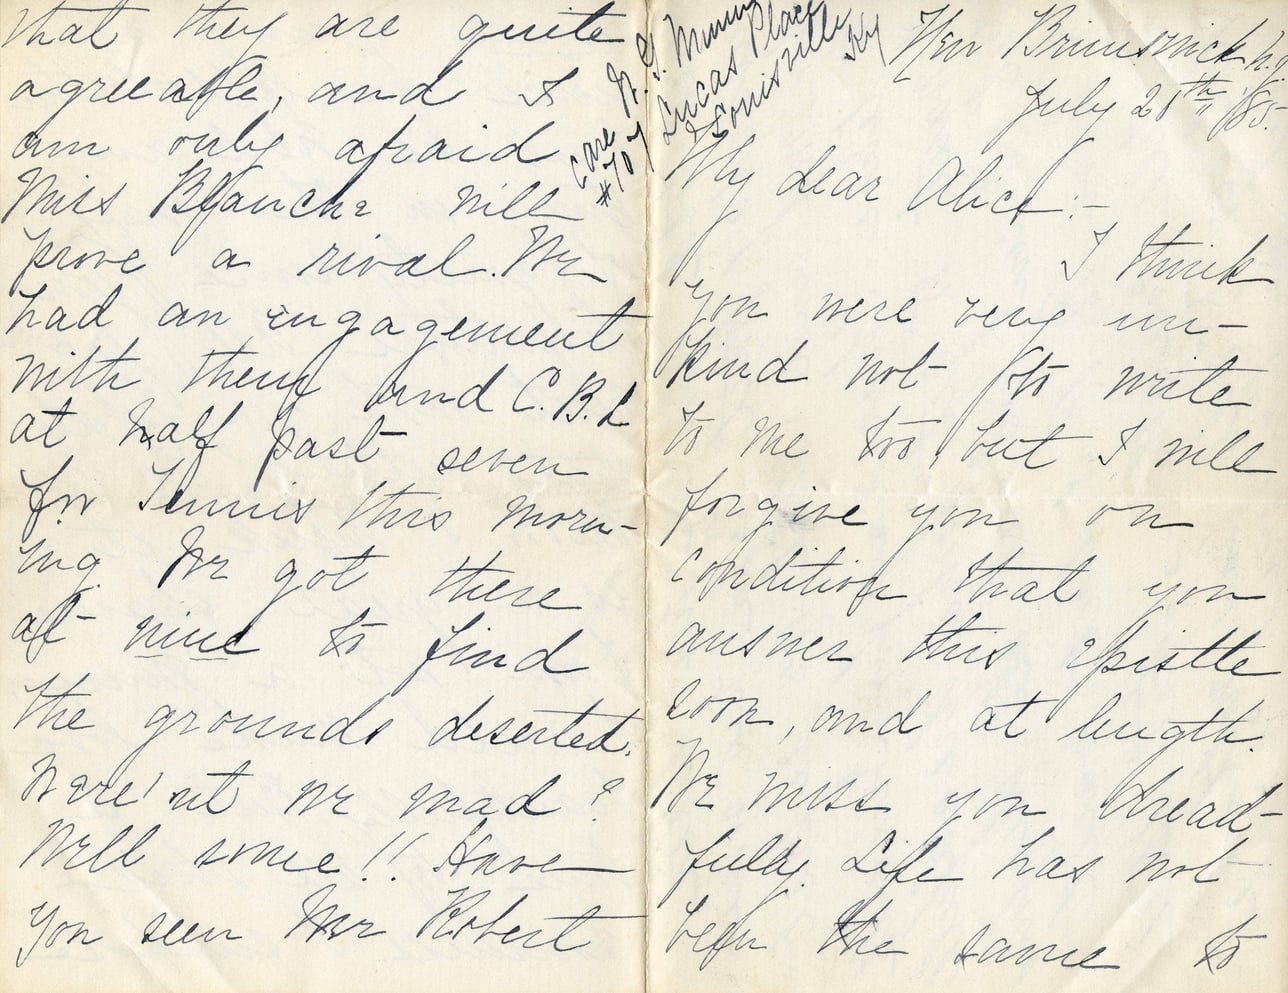 New Brunswick N.J.
July 28th /85.
My dear Alice:-
I think
you were very un-
kind not to write
to me too, but I will
forgive you on
condition that you
answer this epistle
soon, and at length.
We miss you dread-
fully. Life has not
been the same to
Care W. G. Munn
#707 Lucas Place
Louisville Ky
that they are quite
agreeable, and I
am only afraid
Miss Blanche will
prove a rival. We
had an engagement
with them and C.B.L
at half past seven
for Tennis this morn-
ing. We got there
at nine to find
the grounds deserted.
Were'nt we mad?
Well some!! Have
you seen Mr Robert